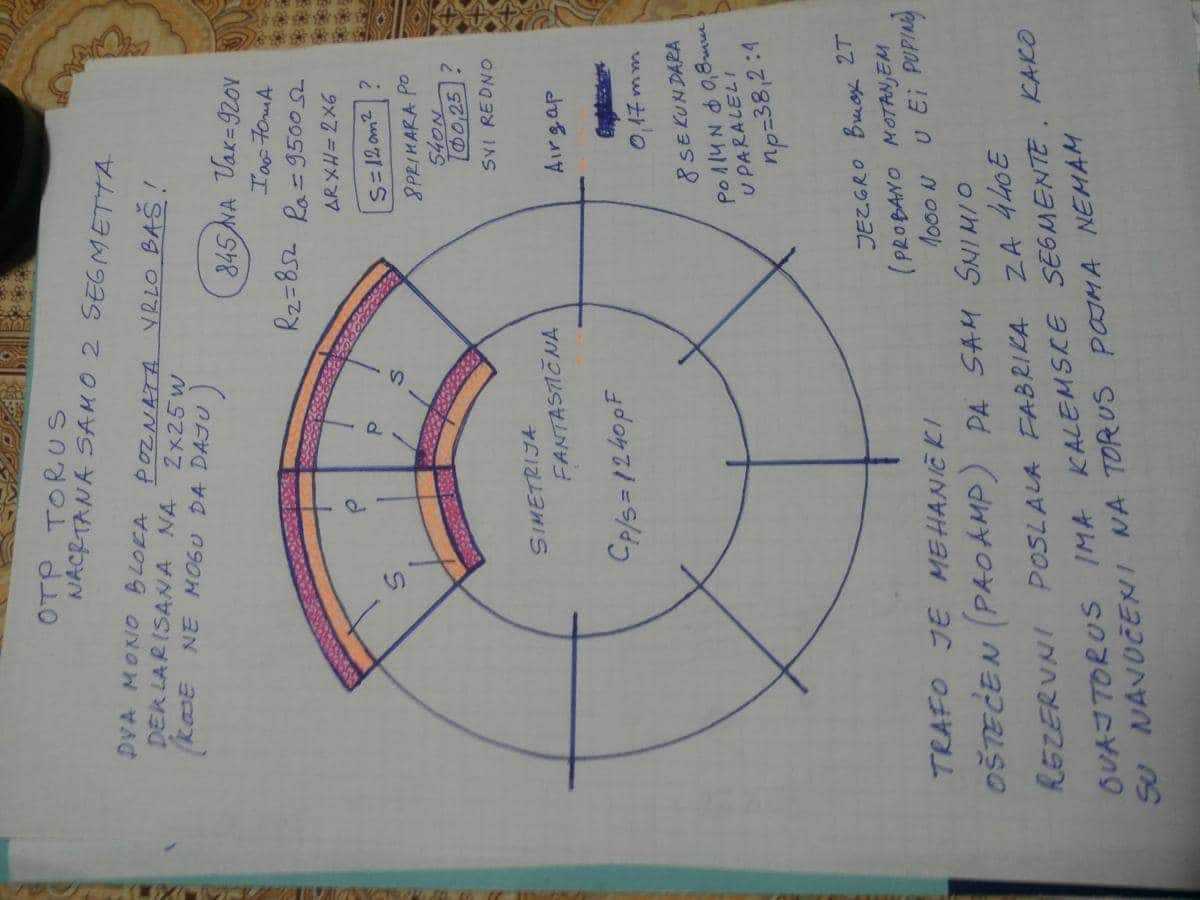 OTP TORUS
NACRTANA SAMO 2 SEGMETTA
DVA MONO BLOKA POZNATA VRLO BAŠ!
DEKLARISANA NA 2X25W
(KOJE NE MOGU DA DAJU)
845 NA Uak=920V
Iao=70mA
RZ=8Ω Ra=9500Ω
ΔRXH=2X6
S=12cm² ?
8 PRIMARA PO
540N
Φ0,25 ?
SVI REDNO
S
P
P
S
SIMETRIJA
FANTASTIČNA
CP/S=1240pF
Airgap
0,17mm
8 SEKUNDARA
PO 114N Φ0,8mm
U PARALELI
np=38,2:1
JEZGRO Bmax 2T
(PROBANO MOTANJEM
1000N U EI PUPING)
TRAFO JE MEHANIČKI
OŠTEĆEN (PAO AMP) PA SAM SNIMIO
REZERVNI POSLALA FABRIKA ZA 440E
OVAJ TORUS IMA KALEMSKE SEGMENTE. KAKO
SU NAVUČENI NA TORUS POJMA NEMAM